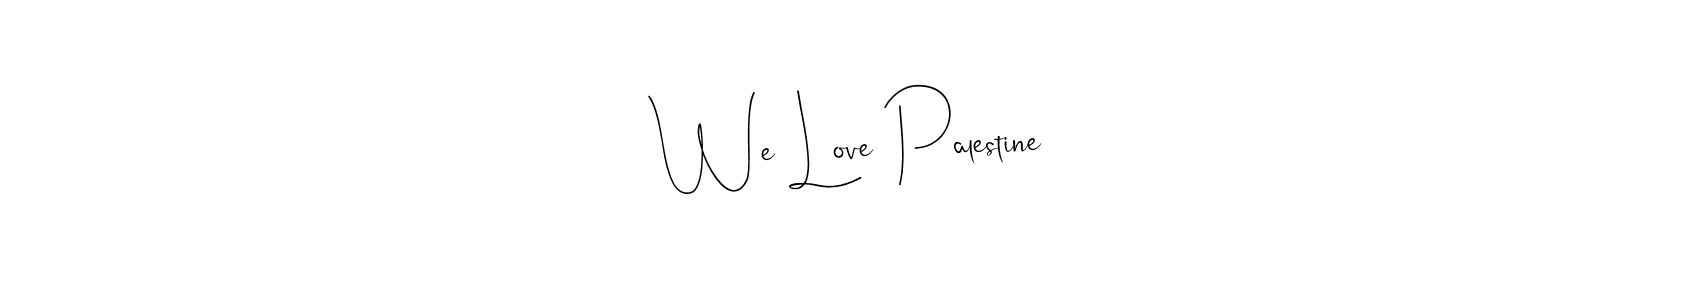 We Love Palestine